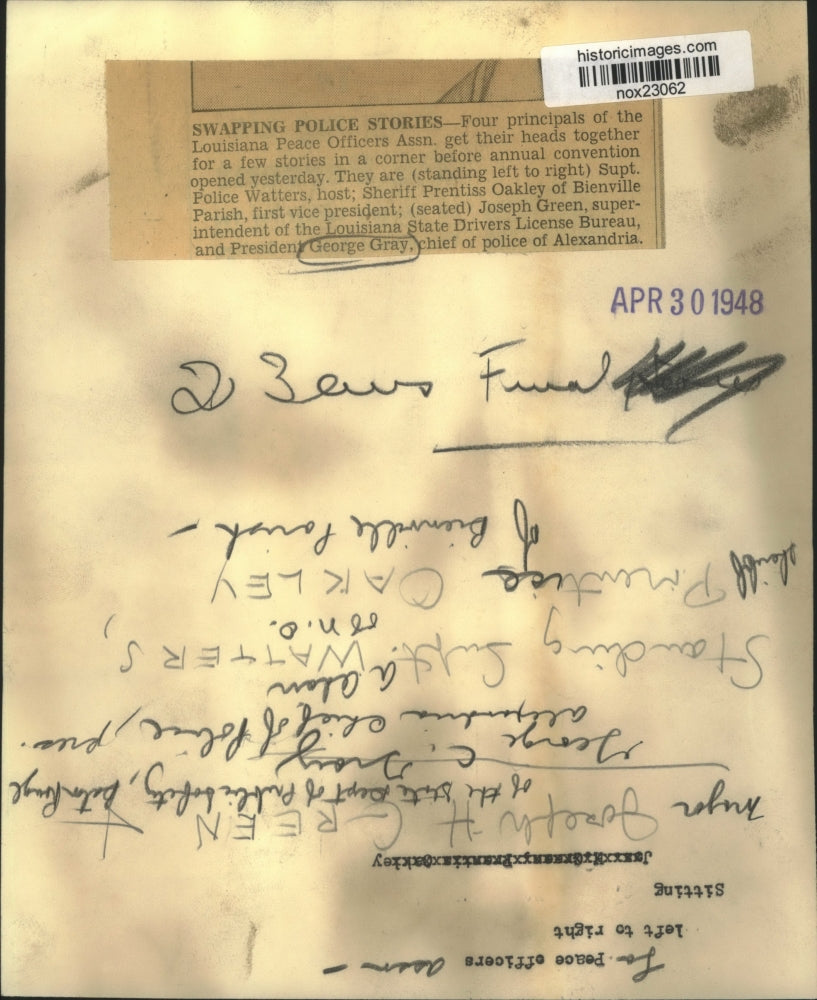 historicimages.com
nox23062
SWAPPING POLICE STORIES—Four principals of the
Louisiana Peace Officers Assn. get their heads together
for a few stories in a corner before annual convention
opened yesterday. They are (standing left to right) Supt.
Police Watters, host; Sheriff Prentiss Oakley of Bienville
Parish, first vice president; (seated) Joseph Green, super-
intendent of the Louisiana State Drivers License Bureau,
and President George Gray, chief of police of Alexandria.
APR 30 1948
La Peace officers assn —
left to right
Sitting
Major Joseph H GREEN
of the State Dept of Public Safety, Baton Rouge
George C. Gray
Alexandria Chief of Police, pres.
Standing Supt. WATTERS,
of N.O.
Sheriff Prentiss OAKLEY
of Bienville Parish —